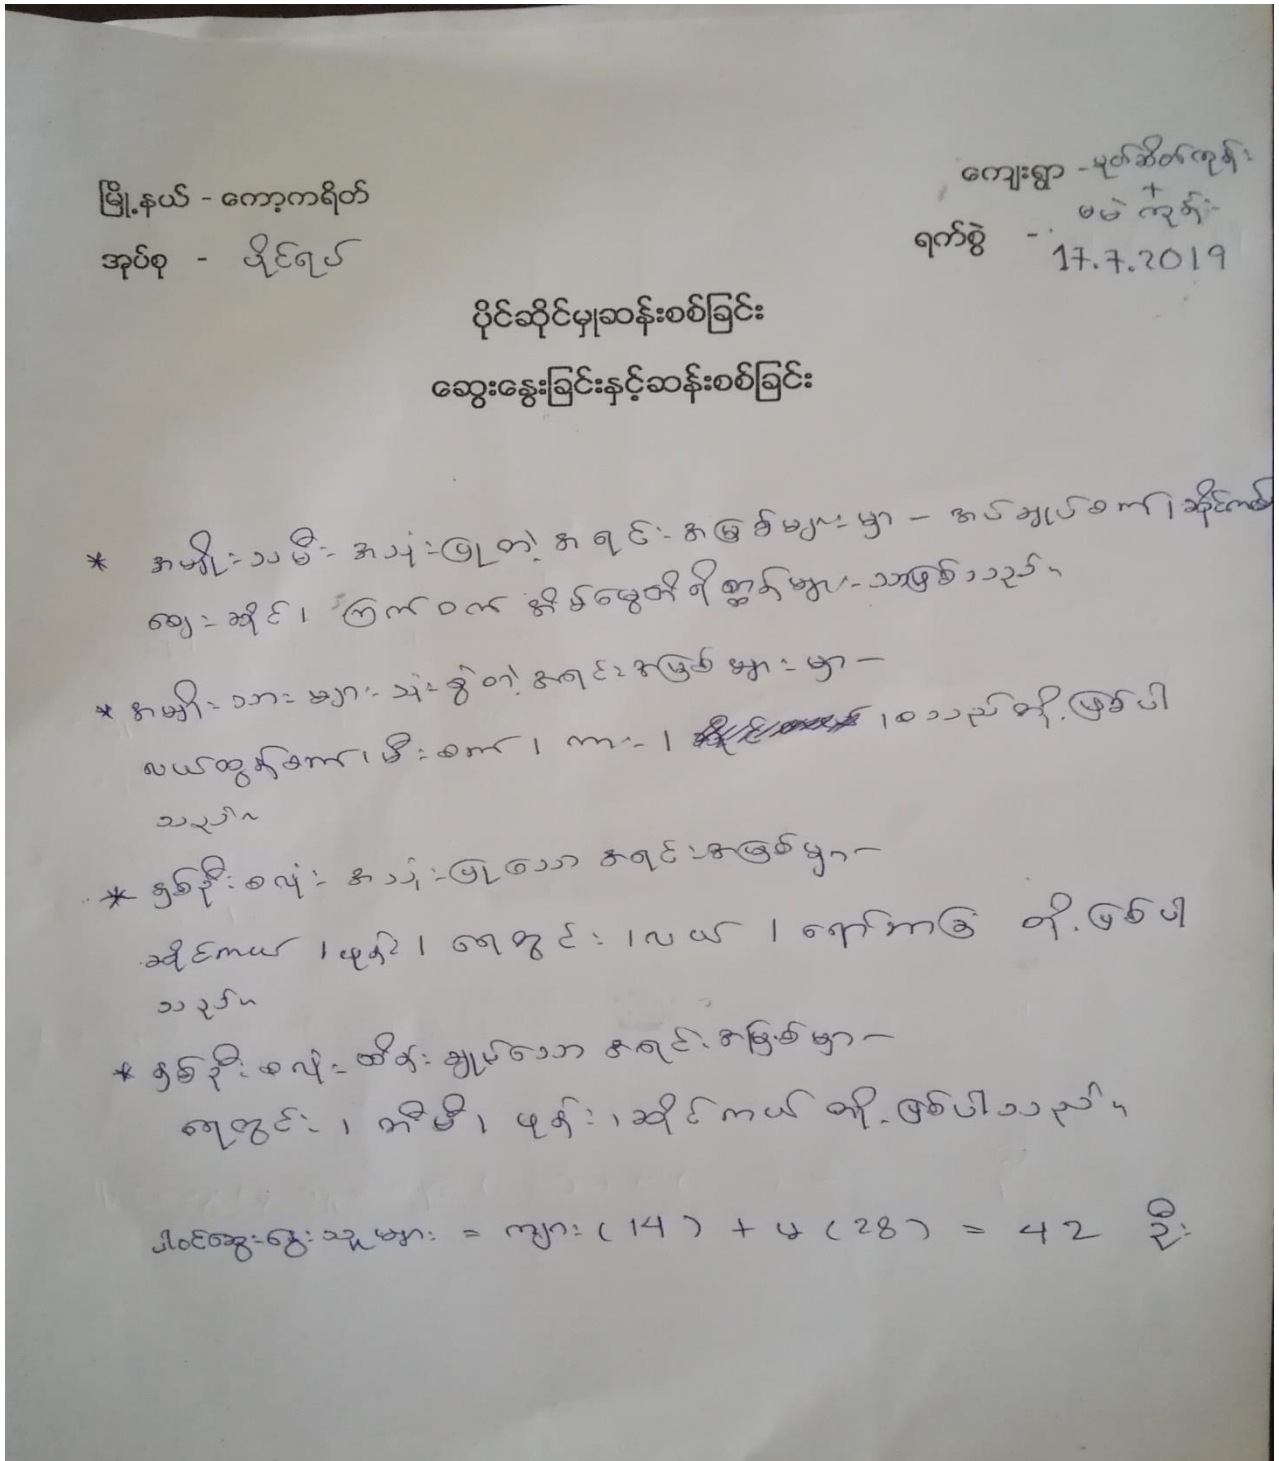 မြို့နယ် - ကော့ကရိတ်
ကျေးရွာ - မုတ်ဆိတ်ကုန်း
+
မမဲ ကုန်း
အုပ်စု - မှိုင်ရပ်
ရက်စွဲ - 17.7.2019
ပိုင်ဆိုင်မှုဆန်းစစ်ခြင်း
ဆွေးနွေးခြင်းနှင့်ဆန်းစစ်ခြင်း
* အမျိုးသမီး အသုံးပြုတဲ့ အရင်းအမြစ်များမှာ - အပ်ချုပ်စက်၊ ဆိုင်ကယ်
ဈေးဆိုင်၊ ကြက်ဝက် အိမ်မွေးတိရိစ္ဆာန်များ သာဖြစ်သည်။
* အမျိုးသား များ သုံးစွဲတဲ့ အရင်းအမြစ် များမှာ -
လယ်ထွန်စက်၊ မီးစက်၊ ကား၊ ၊ စသည်တို့ဖြစ်ပါ
သည်။
* နှစ်ဦးစလုံး အသုံးပြုသော အရင်းအမြစ်မှာ -
ဆိုင်ကယ်၊ ဖုန်း၊ ရေတွင်း၊ လယ်၊ ရော်ဘာခြံ တို့ဖြစ်ပါ
သည်။
* နှစ်ဦးစလုံး ထိန်းချုပ်သော အရင်းအမြစ်မှာ -
ရေတွင်း၊ တီဗီ၊ ဖုန်း၊ ဆိုင်ကယ် တို့ဖြစ်ပါသည်။
ပါဝင်ဆွေးနွေးသူများ = ကျား (14) + မ (28) = 42 ဦး